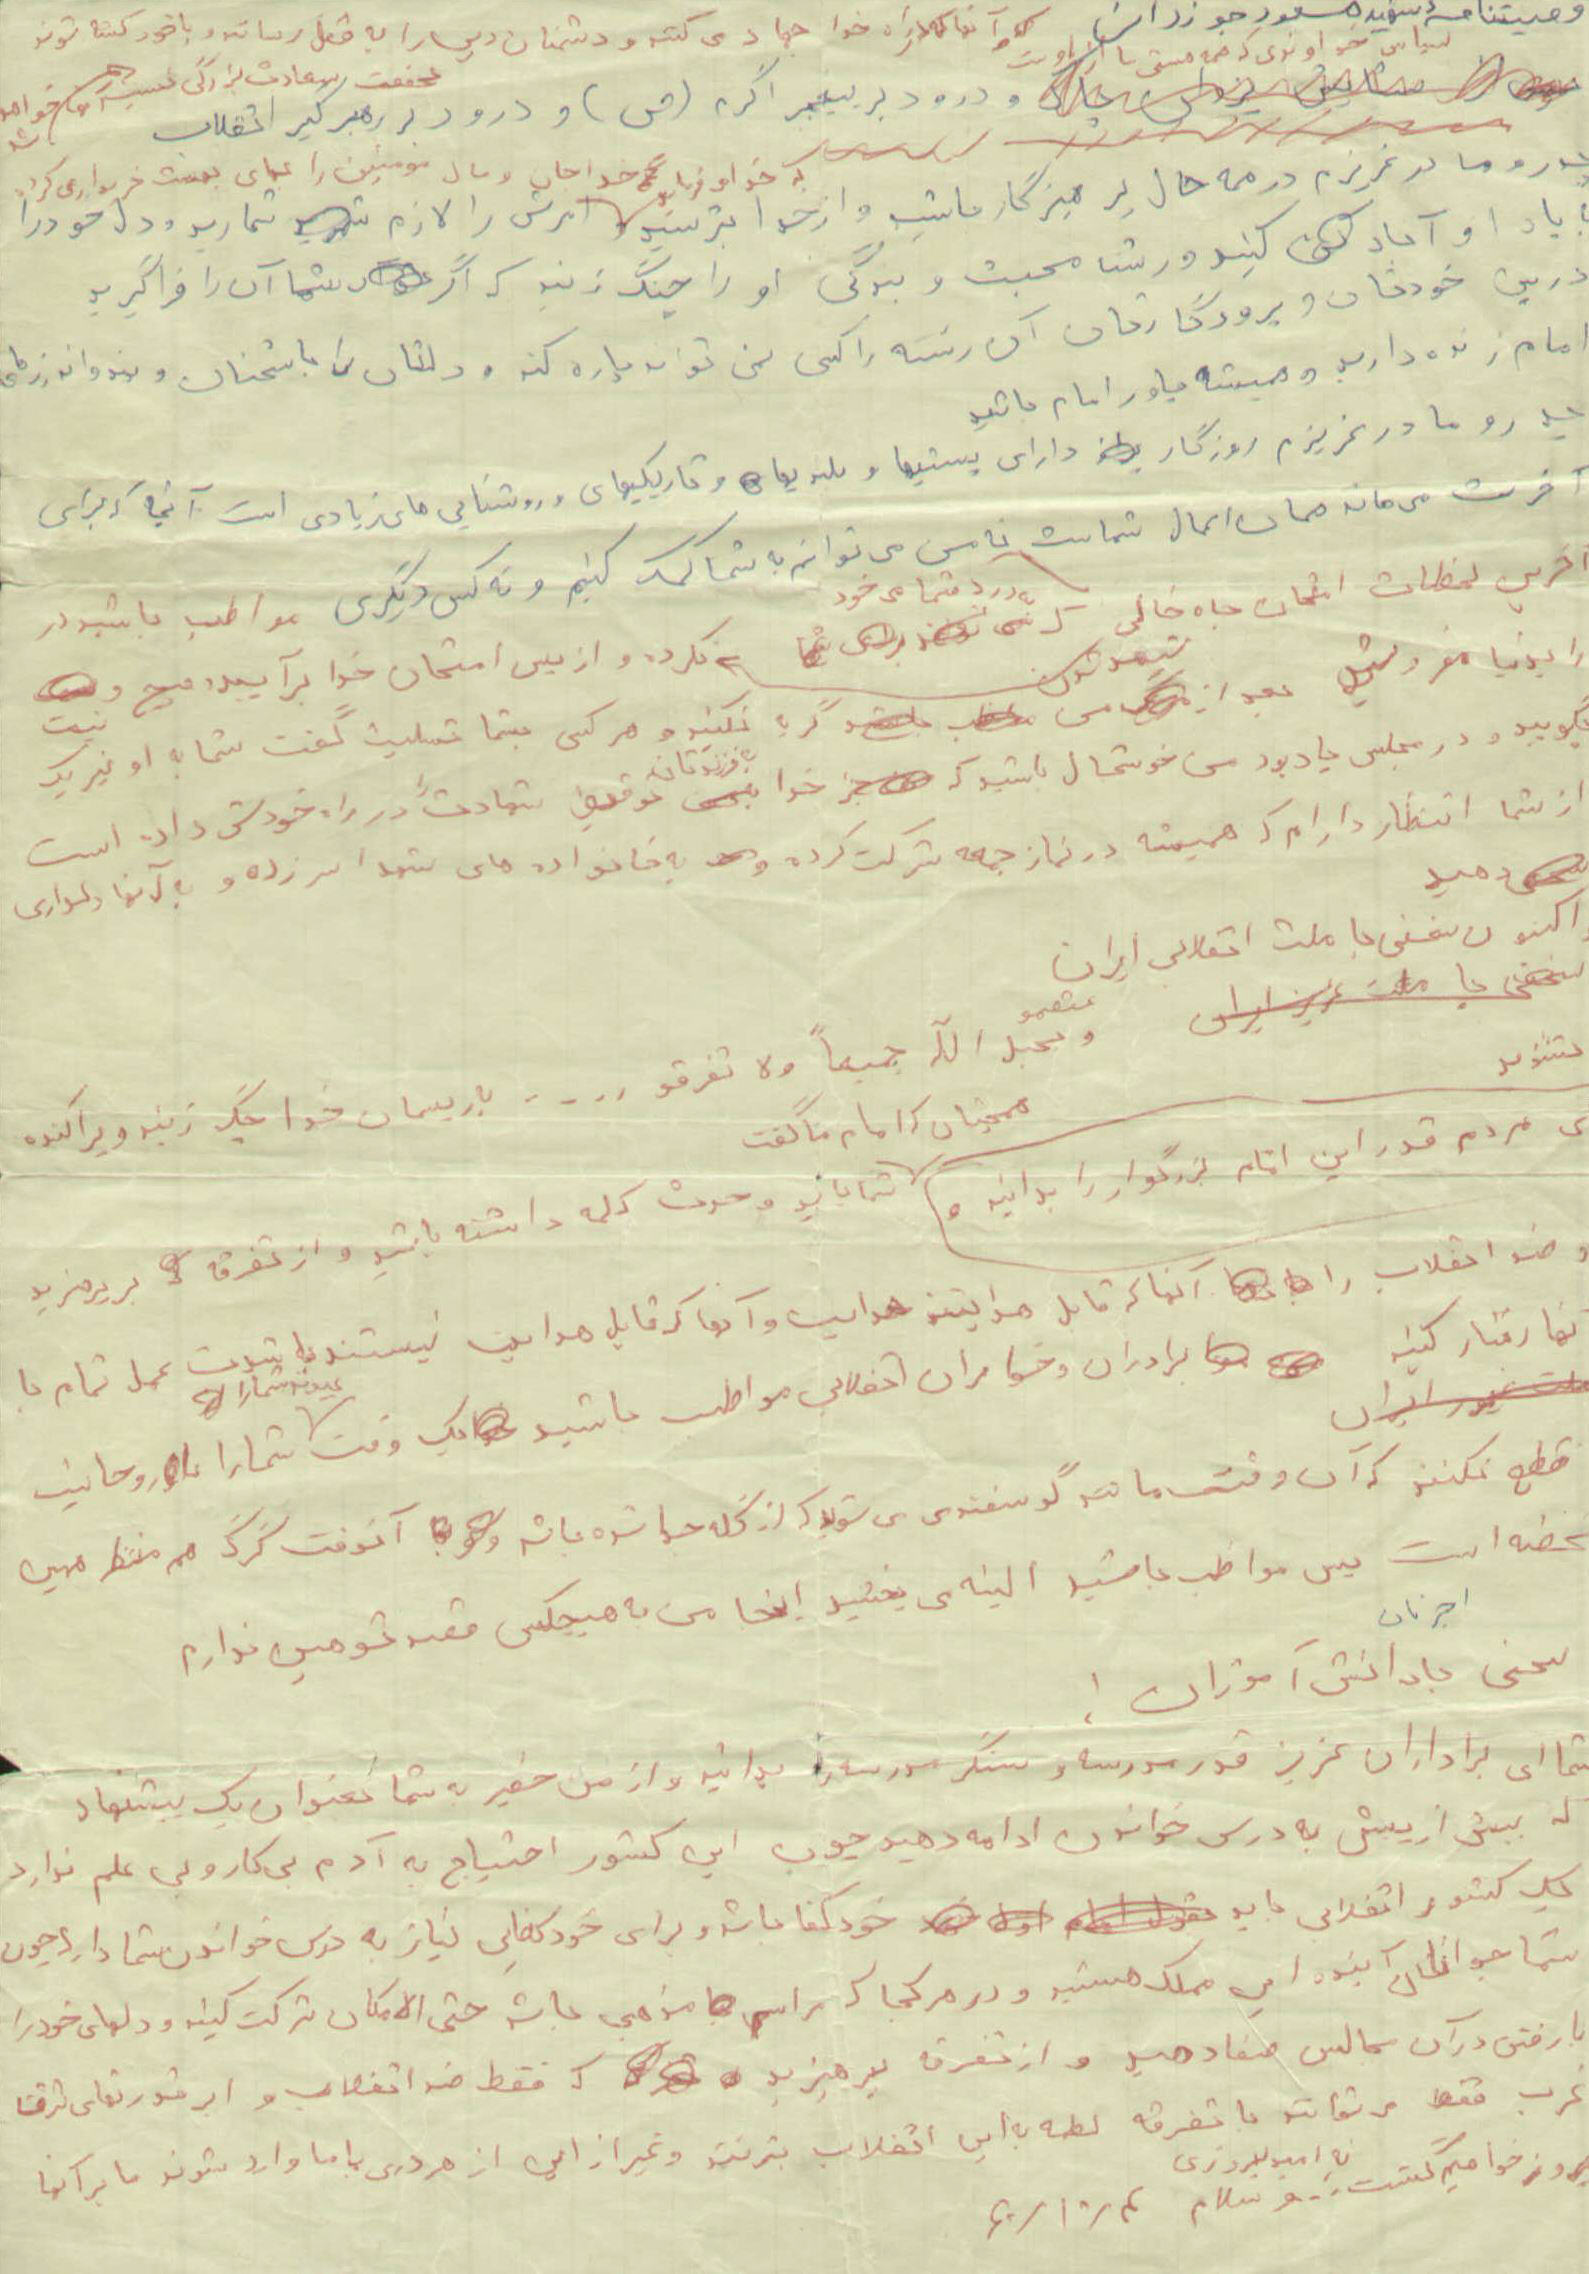 وصیتنامه شهید مسعود جو زدانی
سپاس خداوندی که همه هستی ما از اوست که آنها که در راه خدا جهاد می کنند و دشمنان دین را به قتل رسانند و یا خود کشته شوند
و درود بر پیغمبر اکرم (ص) و درود بر رهبر کبیر انقلاب
که خداوند جان و مال مومنین را به بهای بهشت خریداری کرده
پدر و مادر عزیزم در همه حال پرهیزگار باشید و از خدا بترسید امرش را لازم شمارید و دل خود را
با یاد او آباد کنید و رشته محبت و بندگی او را چنگ زنید که اگر شما آن را فرا گیرید
در بین خودتان و پروردگارتان آن رشته را کسی نمی تواند پاره کند و دلتان را با سخنان و پند و اندرزهای
امام زنده دارید و همیشه یاور امام باشید
پدر و مادر عزیزم روزگار دارای پستیها و بلندیها و تاریکیهای و روشنایی های زیادی است آنچه که برای
آخرت می ماند همان اعمال شماست نه من می توانم به شما کمک کنم و نه کس دیگری مواظب باشید در
آخرین لحظات امتحان جاه خالی که به درد شما می خورد نکرده و از پس امتحان خدا برآیید و هیچ
را به دنیا نفروشید بعد از شهید شدن من گریه نکنید و هر کسی بشما تسلیت گفت شما به او تبریک
بگویید و در مجلس یادبود من خوشحال باشید که خدا به فرزندتان توفیق شهادت در راه خودش داده است
از شما انتظار دارم که همیشه در نماز جمعه شرکت کرده و به خانواده های شهدا سر زده و به آنها دلداری
دهید
و اکنون سخنی با ملت انقلابی ایران
سخنی با ملت عزیز ایران
و عتصمو بحبل الله جمیعاً ولا تفرقو ..... به ریسمان خدا چنگ زنید و پراکنده
نشوید
همچنان که امام ما گفت
ای مردم قدر این امام بزرگوار را بدانید و شما باید وحدت کلمه داشته باشید و از تفرقه بپرهیزید
و ضد انقلاب را آنها که قابل هدایتند هدایت و آنها که قابل هدایت نیستند با شدت عمل تمام با
آنها رفتار کنید
ملت غیور ایران برادران و خواهران انقلابی مواظب باشید یک وقت شما را از روحانیت
قطع نکنند که آن وقت مانند گوسفندی می شوید که از گله جدا شده باشد و آنوقت گرگ هم منتظر همین
لحظه است پس مواظب باشید البته می بخشید اینجا من به هیچکس قصد توهین ندارم
سخنی با دانش آموزان !
شما ای برادران عزیز قدر مدرسه و سنگر مدرسه را بدانید و از من حقیر به شما بعنوان یک پیشنهاد
که بیش از پیش به درس خواندن ادامه دهید چون این کشور احتیاج به آدم بی کار و بی علم ندارد
یک کشور انقلابی باید خودکفا باشد و برای خودکفایی نیاز به درس خواندن شما دارد چون
شما جوانان آینده این مملکت هستید و در هر کجا که مراسم مذهبی باشد حتی الامکان شرکت کنید و دلهای خود را
با رفتن در آن مجالس صفا دهید و از تفرقه بپرهیزید که فقط ضد انقلاب و ابرقدرتهای شرق
غرب فقط می توانند با تفرقه لطمه به این انقلاب بزنند و غیر از این از هر دری با ما وارد شوند ما بر آنها
پیروز خواهیم گشت به امید پیروزی
و سلام